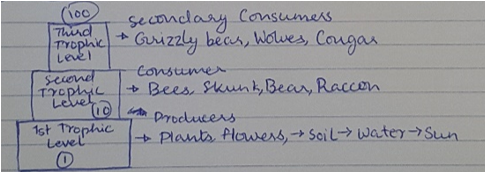 (100) Secondary Consumers
Third Trophic Level → Grizzly bear, Wolves, Cougar
Consumer
Second Trophic Level (10) → Bees, Skunk, Bear, Raccon
Producers
1st Trophic Level (1) → Plants flowers, → Soil → Water → Sun